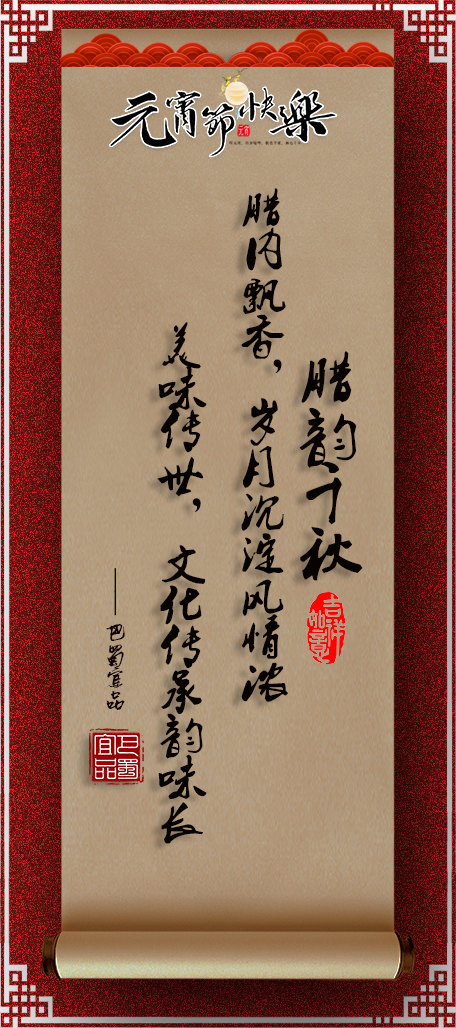 元宵節快樂
元宵
腊韵千秋
吉祥如意
腊肉飘香，岁月沉淀风情浓
美味传世，文化传承韵味长
——巴蜀宜品
巴蜀宜品